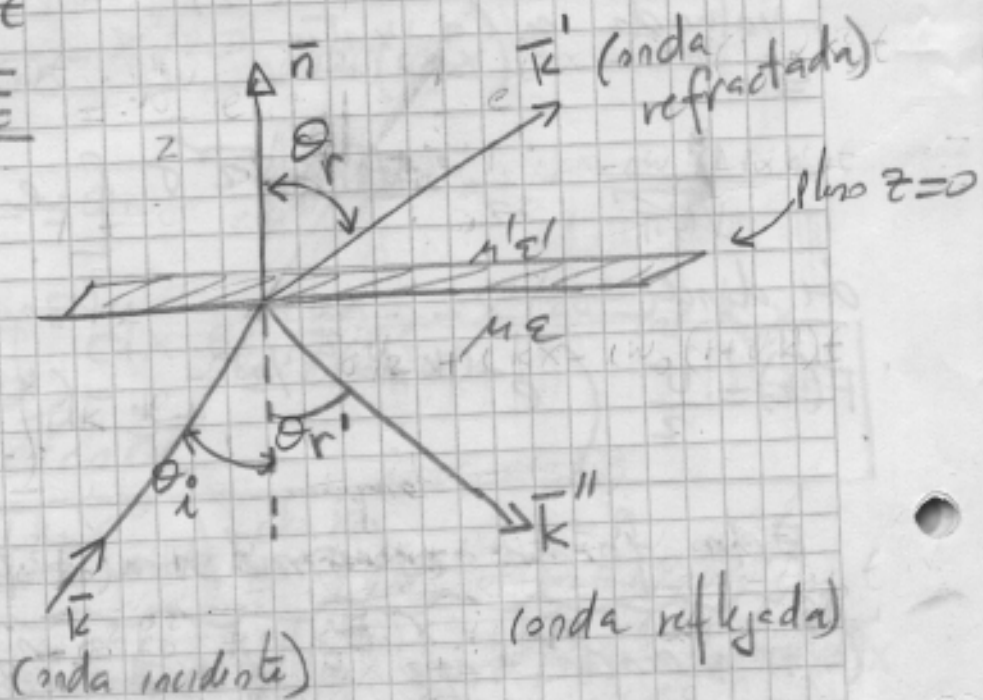 n̄
k̄' (onda
refractada)
z
θr
plano z=0
μ'ε'
με
θi
θr'
k̄"
k̄
(onda reflejada)
(onda incidente)